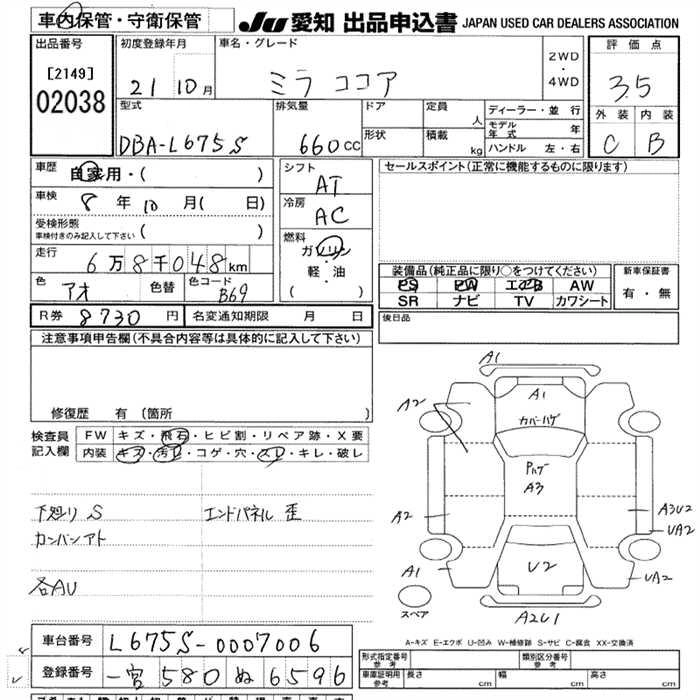 車内保管・守衛保管
JU 愛知 出品申込書 JAPAN USED CAR DEALERS ASSOCIATION
出品番号
[2149]
02038
初度登録年月
21 10月
車名・グレード
ミラ ココア
2WD
・
4WD
評価点
3.5
型式
DBA-L675S
排気量
660cc
ドア
形状
定員
人
積載
kg
ディーラー・並行
モデル年式 年
ハンドル 左・右
外装 内装
C B
車歴
自家用・( )
車検
8年10月( 日)
受検形態
車検付きのみ記入して下さい ( )
走行
6万8千048km
色
アオ
色替
色コード
B69
シフト
AT
冷房
AC
燃料
ガソリン
軽・油
( )
セールスポイント(正常に機能するものに限ります)
装備品(純正品に限り○をつけてください)
PS PW エアB AW
SR ナビ TV カワシート
新車保証書
有・無
R券 8730円
名変通知期限 月 日
後日品
注意事項申告欄(不具合内容等は具体的に記入して下さい)
修復歴 有(箇所 )
検査員記入欄
FW キズ・飛石・ヒビ割・リペア跡・X要
内装 キズ・汚れ・コゲ・穴・スレ・キレ・破レ
下廻り S
エンドパネル 歪
カンバンアト
各AU
A1
A1
カバーハゲ
A2
Pハゲ
A3
A2
A3U2
UA2
A1
U2
UA2
スペア
A2U1
A-キズ E-エクボ U-凹み W-補修跡 S-サビ C-腐食 XX-交換済
車台番号 L675S-0007006
登録番号 一宮 580 ぬ 6596
形式指定番号
参考
類別区分番号
参考
車庫証明用
参考
長さ cm
幅 cm
高さ cm